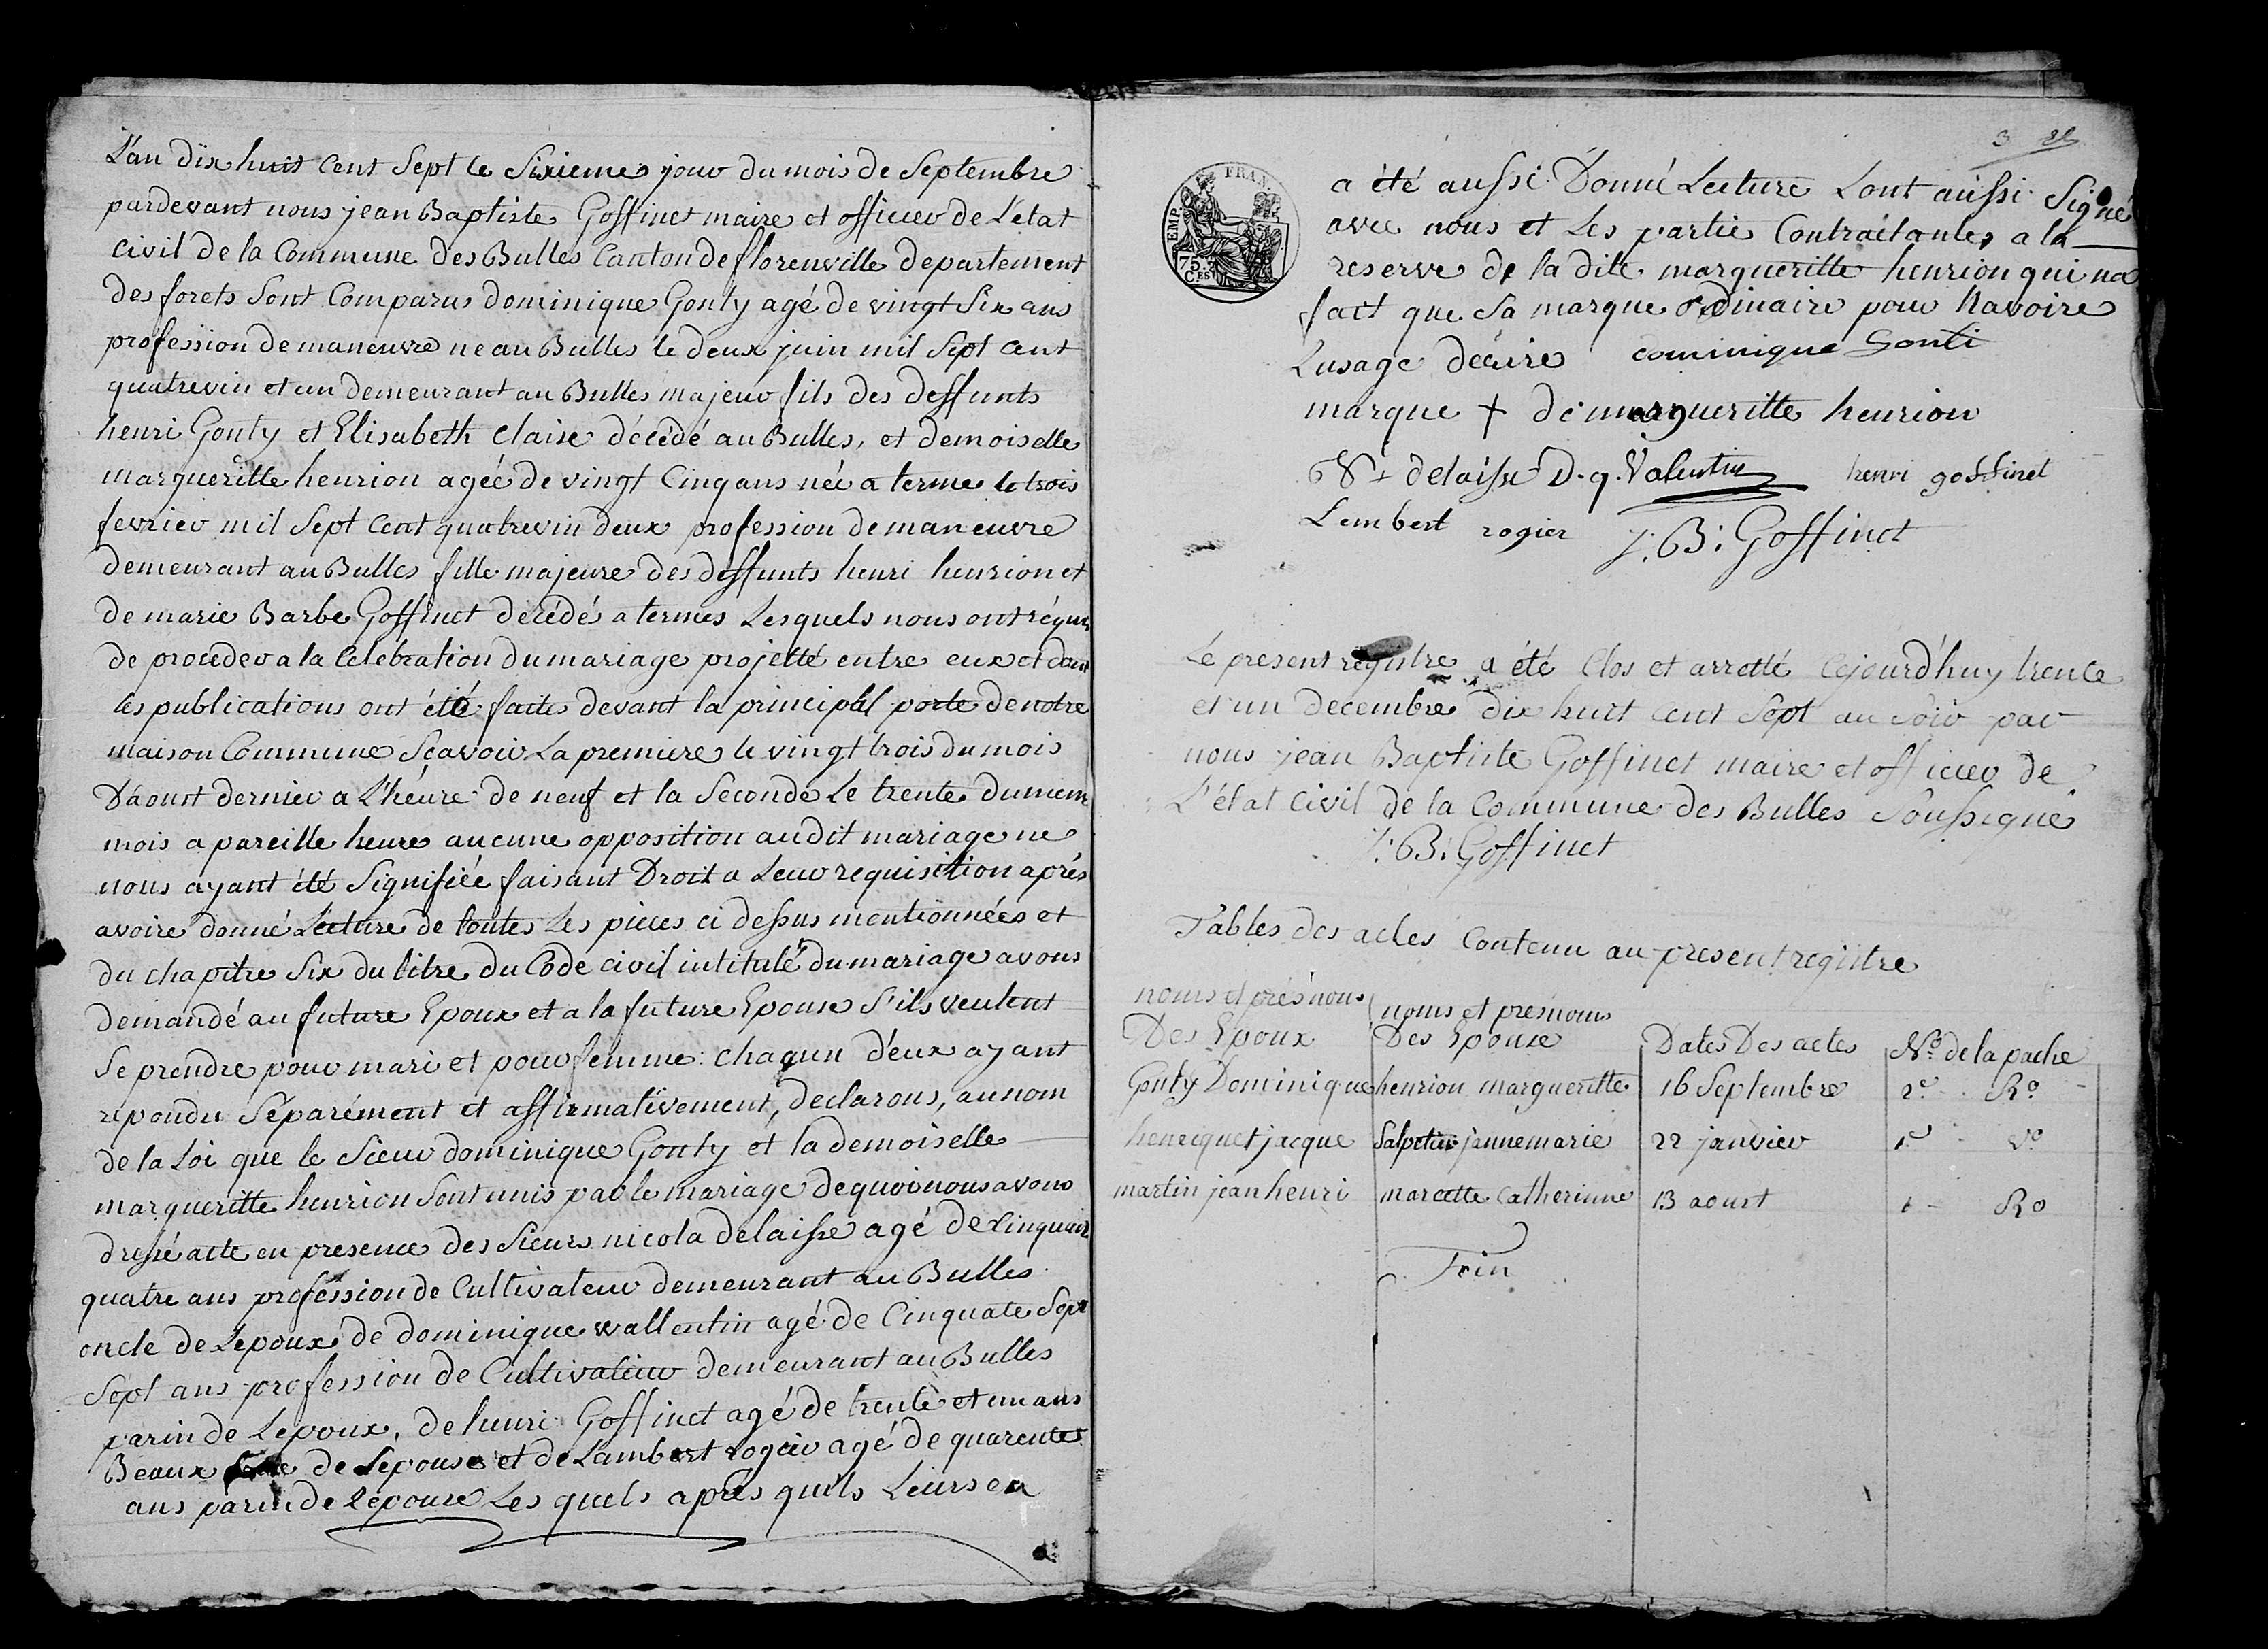 L'an dix huit Cent Sept le Sixieme jour du mois de Septembre
pardevant nous jean Baptiste Goffinet maire et officier de L'etat
Civil de la Commune des Bulles Canton de florenville departement
des forets Sont Comparus dominique Gouty agé de vingt Six ans
profession de maneuvre ne au Bulles le deux juin mil Sept cent
quatrevin et un demeurant au Bulles majeur fils des deffunts
henri Gouty et Elisabeth Claise décédé au Bulles, et demoiselle
margueritte henrion agée de vingt Cinq ans née a terme le trois
fevrier mil Sept Cent quatrevin deux profession de maneuvre
demeurant au Bulles fille majeure des deffunts henri henrion et
de marie Barbe Goffinet décédé a termes Lesquels nous ont réquis
de proceder a la Celebration du mariage projetté entre eux et dont
les publications ont été faites devant la principal porte de notre
maison Commune Sçavoir La premiere le vingt trois du mois
D'aoust dernier a L'héure de neuf et la Seconde Le trente du mem
mois a pareille heure aucune opposition audit mariage ne
nous ayant été Signifiée faisant Droit a Leur requisition aprés
avoire donné Lecture de toutes Les pieces ci dessus mentionnées et
du chapitre Six du titre du Code civil intitulé du mariage avons
demandé au future Epoux et a la future Epouse S'ils veulent
Se prendre pour mari et pour femme: chaqun d'eux ayant
repondu Séparément et affirmativement, declarons, au nom
de la Loi que le Sieur dominique Gouty et la demoiselle
margueritte henrion Sont unis par le mariage de quoi nous avons
dressé acte en presence des Sieurs nicola delaisse agé de Cinquant
quatre ans profession de Cultivateur demeurant au Bulles
oncle de Lepoux de dominique wallentin agé de Cinquate Sept
Sept ans profession de Cultivateur demeurant au Bulles
parin de Lepoux, de henri Goffinet agé de trente et un ans
Beaux de Lepouse et de Lambert rogier agé de quarente
ans parin de L'epouse Les quels apres quils Leurs en
3
FRAN
EMP.
75
C.ES
a été aussi Donné Lecture Lont aussi Signé
avec nous et Les partie Contractantes a la
reserve de la dite margueritte henrion qui na
fait que Sa marque ordinaire pour Navoire
Lusage décrire dominique Gonti
marque + de margueritte henrion
delaisse D. q. Valentin henri goffinet
Lambert rogier J: B: Goffinet
Le present registre a été Clos et arretté Cejourd'huy trente
et un decembre dix huit cent Sept au soir par
nous jean Baptiste Goffinet maire et officier de
L'état Civil de la Commune des Bulles Soussigné
J: B: Goffinet
Tables des actes Contenu au present registre
noms et présnoms noms et presnoms
Des Epoux Des Epouse Dates Des actes No. de la pache
Gouty Dominique henrion margueritte 16 Septembre 2e Ro
henriquet jacque Salpeteur jannemarie 22 janvier 1e Vo
martin jean henri marcette Catherinne 13 aoust 1 Ro
Fin